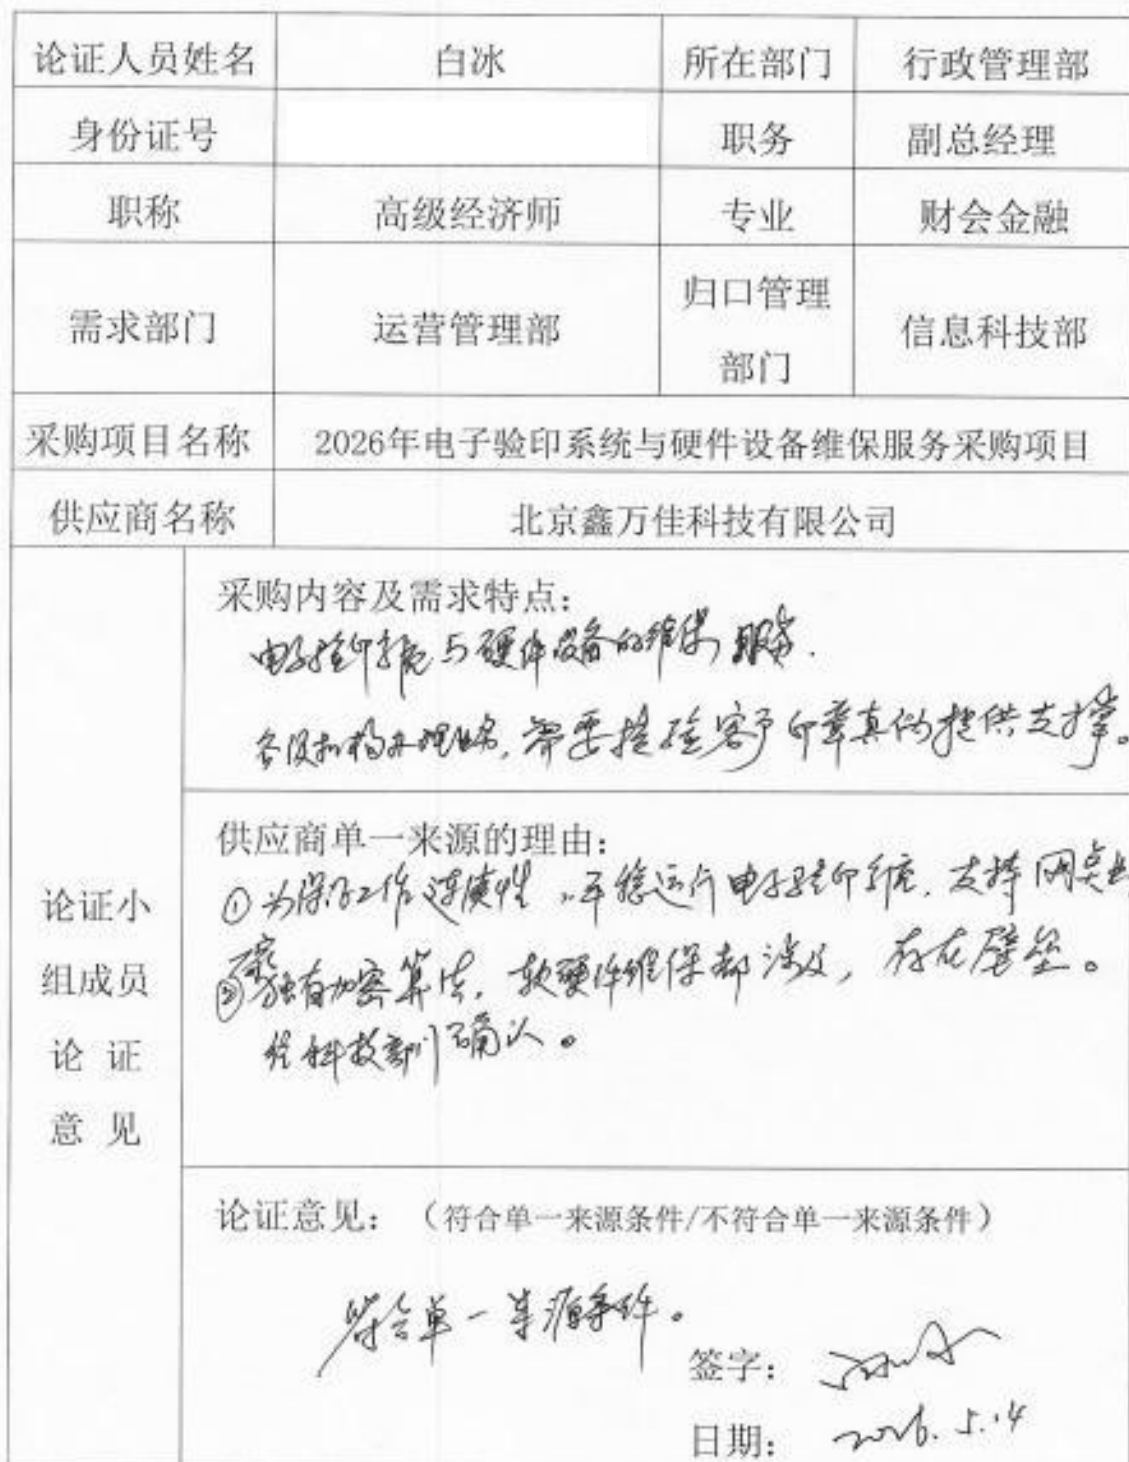 论证人员姓名 白冰 所在部门 行政管理部
身份证号 职务 副总经理
职称 高级经济师 专业 财会金融
需求部门 运营管理部 归口管理部门 信息科技部
采购项目名称 2026年电子验印系统与硬件设备维保服务采购项目
供应商名称 北京鑫万佳科技有限公司
论证小组成员论证意见
采购内容及需求特点:
电子验印系统与硬件设备的维保服务.
各级机构办理业务,需要检验客户印章真伪提供支撑。
供应商单一来源的理由:
①为保证工作连续性,平稳运行电子验印系统.支持网点
②独有加密算法,软硬件维保都涉及,存在壁垒。
经科技部门确认。
论证意见:(符合单一来源条件/不符合单一来源条件)
符合单一来源条件。
签字:
日期: 2026.5.14